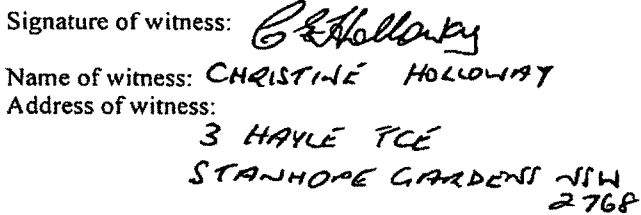 Signature of witness: C E Holloway
Name of witness: CHRISTINE HOLLOWAY
Address of witness:
3 HAYLE TCE
STANHOPE GARDENS NSW
2768